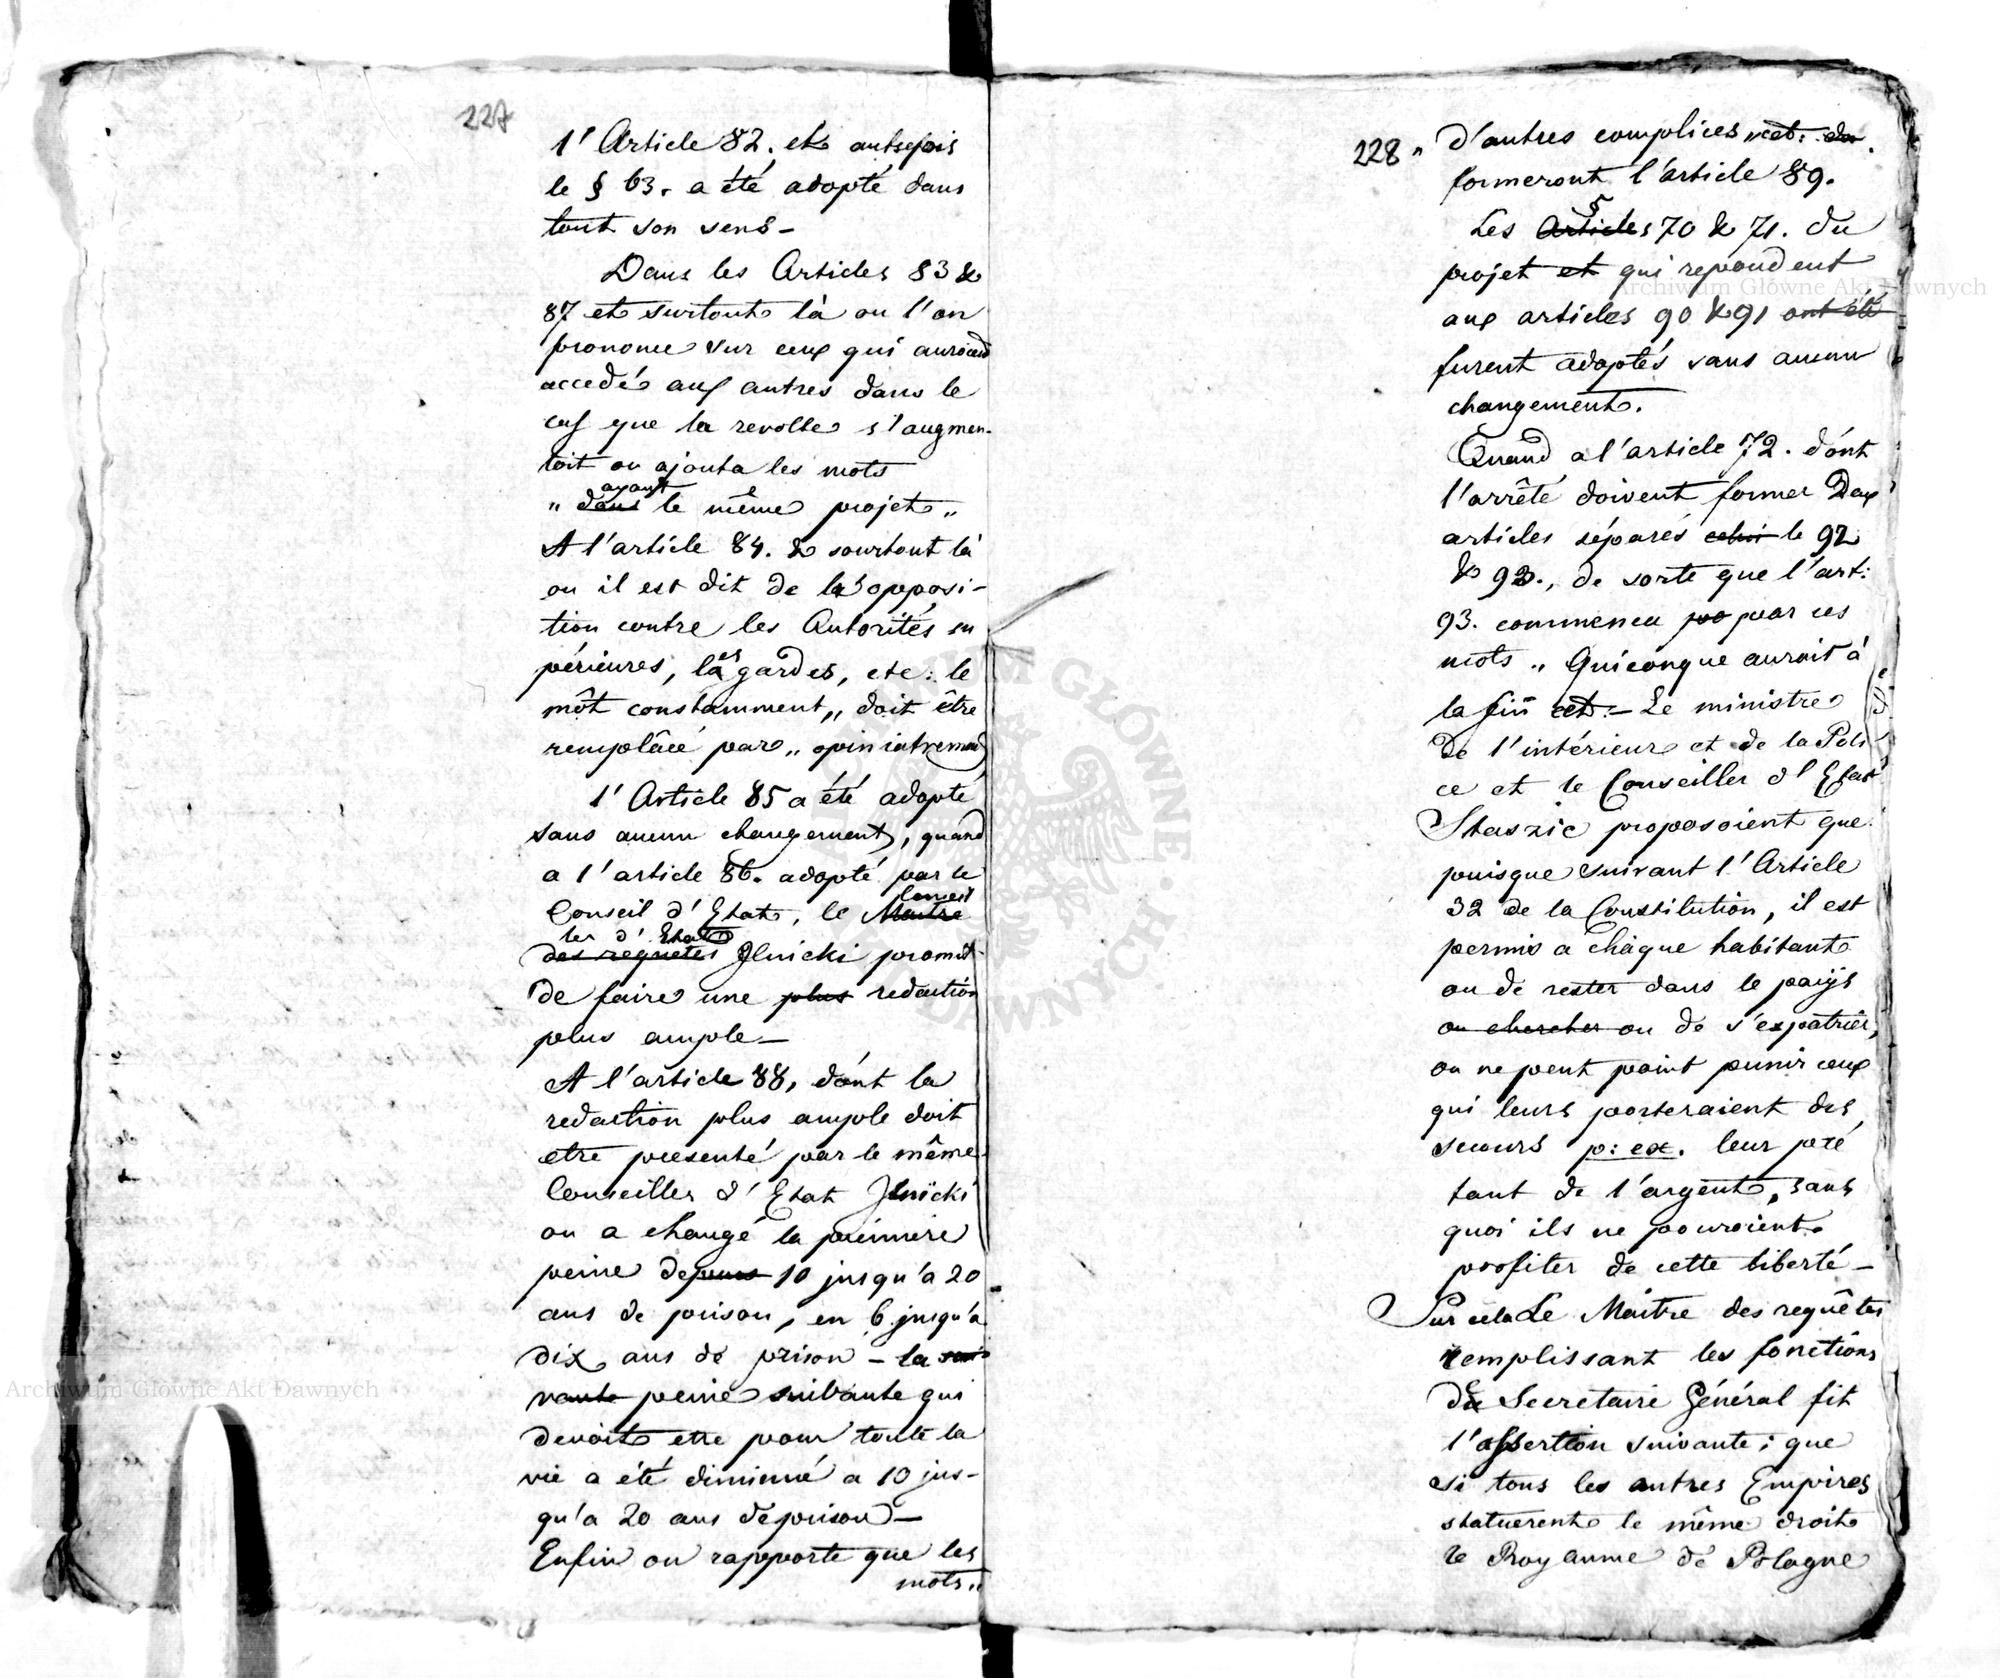 227
l'Article 82. et autrefois
le § 63. a été adopté dans
tout son sens –
Dans les Articles 83 &
87 et surtout là ou l'on
prononce sur ceux qui auroient
accedé aux autres dans le
cas que la revolte s'augmen-
toit on ajouta les mots
ayant
„ dans le même projet „
A l'article 84. & sourtout là
ou il est dit de la opposi-
tion contre les Autorités su
périeures, les gardes, etc: le
môt constamment „ doit être
remplâcé par „ opiniatrement
l'Article 85 a été adopté
sans aucun changement, quand
a l'article 86. adopté par le
Conseil d'Etat, le Maitre Conseil
ler d'Etat
des requetes Ilnicki promit
de faire une plus redaction
plus ample –
A l'article 88, dont la
redaction plus ample doit
etre presenté par le même
Conseiller d'Etat Ilnicki
on a changé la premiere
peine depuis 10 jusqu'a 20
ans de prison, en 6 jusqu'a
dix ans de prison – la sui
vante peine suivante qui
devoit etre pour toute la
vie a été diminué a 10 jus-
qu'a 20 ans de prison –
Enfin on rapporte que les
mots „
228 „ d'autres complices „ cet:
formeront l'article 89.
§
Les Articles 70 & 71. du
projet et qui repondent
aux articles 90 & 91 ont été
furent adoptés sans aucun
changement.
Quand a l'article 72. dont
l'arrêté doivent former Deux
articles séparés celui le 92
& 93., de sorte que l'art:
93. commenca par ces
mots „ Quiconque auroit à
la fin cet: – Le ministre
de l'intérieur et de la Poli
ce et le Conseiller d'Etat
Staszic proposoient que
puisque suivant l'Article
32 de la Constitution, il est
permis a châque habitant
ou de rester dans le païjs
ou chercher ou de s'expatrier,
on ne peut point punir ceux
qui leurs porteraient des
secours p: ex. leur pré
tant de l'argent, sans
quoi ils ne pouroient
profiter de cette liberté –
Sur cela Le Maitre des requêtes
remplissant les fonctions
de Secretaire Général fit
l'assertion suivante; que
si tous les autres Empires
statuerent le même droit
le Royaume de Pologne
Archiwum Główne Akt Dawnych
Archiwum Główne Akt Dawnych
ARCHIWUM GŁÓWNE · AKT DAWNYCH ·